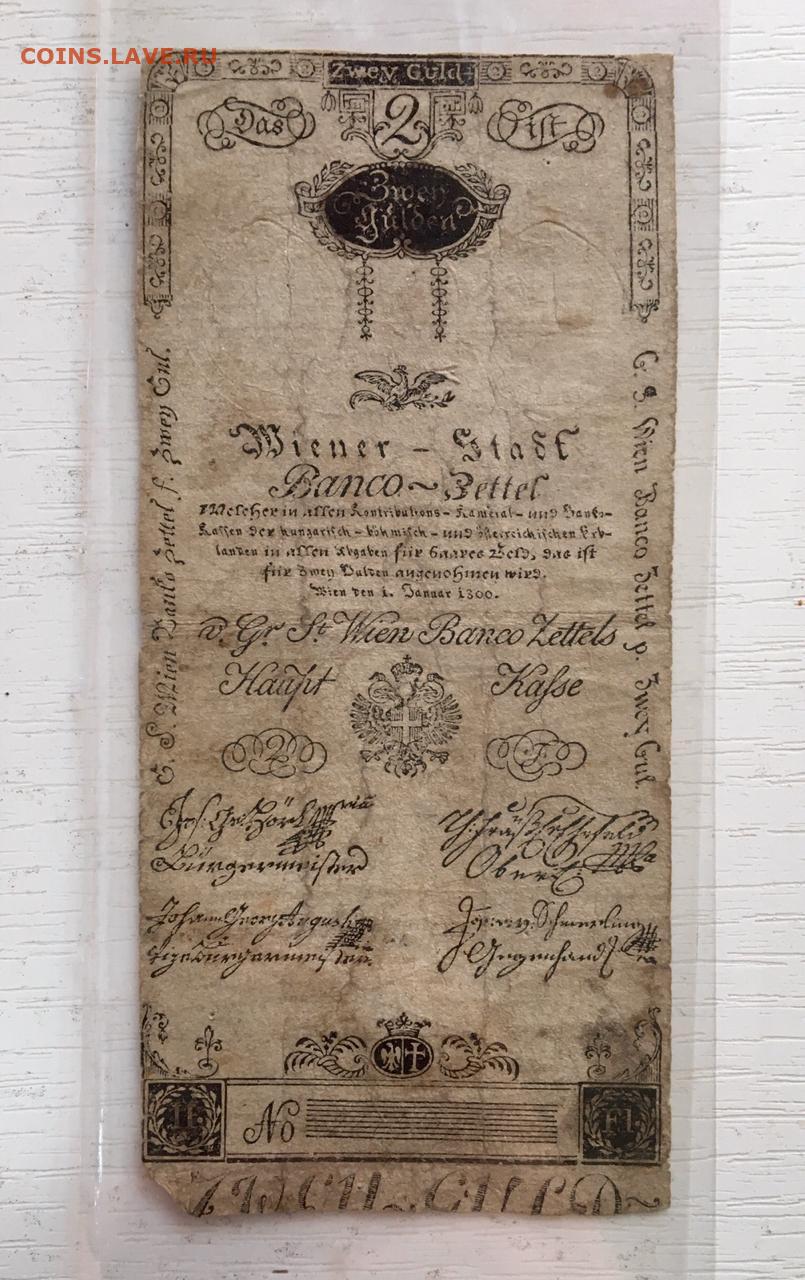 COINS.LAVE.RU
Zwey Guld
Das 2 ist
Zwey
Gulden
Wiener – Stadt
Banco ~ Zettel
Welcher in allen Kontributions – Kameral – und Banko–
Kassen der hungarisch – böhmisch – und österreichischen Erb–
landen in allen Abgaben für baares Geld, das ist
für Zwey Gulden angenohmen wird.
Wien den 1. Januar 1800.
v. Gr. St. Wien Banco Zettels
Haupt Kasse
G. S. Wien Banco Zettel f. Zwey Gul.
G. S. Wien Banco Zettel p. Zwey Gul.
2 F.
Bürgermeister
Johann Georg
Vizebürgermeister
v. Schmerling
Gegenhandl
II. No Fl.